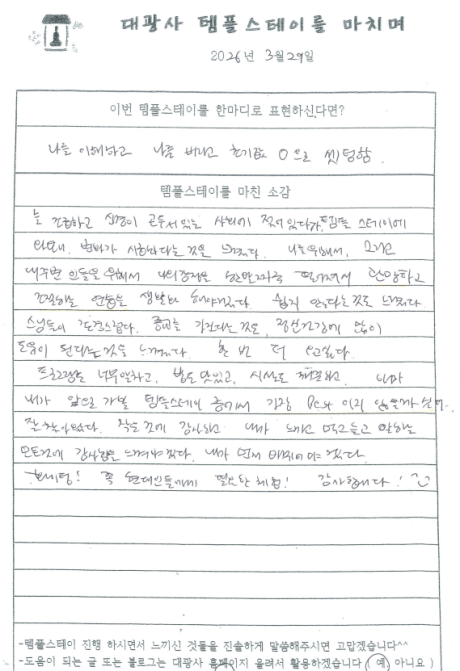 대광사 템플스테이를 마치며
2026년 3월29일
이번 템플스테이를 한마디로 표현하신다면?
나를 이해하고 나를 버리고 초기값 0으로 셋팅함.
템플스테이를 마친 소감
늘 조급하고 신경이 곤두서있는 사회에 찌들어 있다가, 템플 스테이에
와보니, 변화가 시작된다는 것을 느꼈다. 나를 위해서, 그리고
내 주변 인들을 위해서 나의 감정을 한발자국 떨어져서 관망하고
조절하는 연습을 생활화 해야겠다. 쉽지 않다는 것도 느꼈다.
스님들이 존경스럽다. 종교를 가진다는 것도, 정신건강에 많이
도움이 된다는 것을 느꼈다. 한 번 더 오고싶다.
프로그램도 너무 알차고, 밥도 맛있고, 시설도 깨끗하고,
내가 앞으로 가볼 템플스테이 중에서 가장 Best 이지 않을까 싶어.
잘 찾아왔다. 작은 것에 감사하고 내가 느끼고 먹고 듣고 말하는
모든 것에 감사함을 느껴야겠다. 내가 먼저 바뀌어야겠다
화이팅! 꼭 현대인들에게 필요한 체험! 감사합니다!
-템플스테이 진행 하시면서 느끼신 것들을 진솔하게 말씀해주시면 고맙겠습니다^^
-도움이 되는 글 또는 블로그는 대광사 홈페이지 올려서 활용하겠습니다 (예) 아니요 )